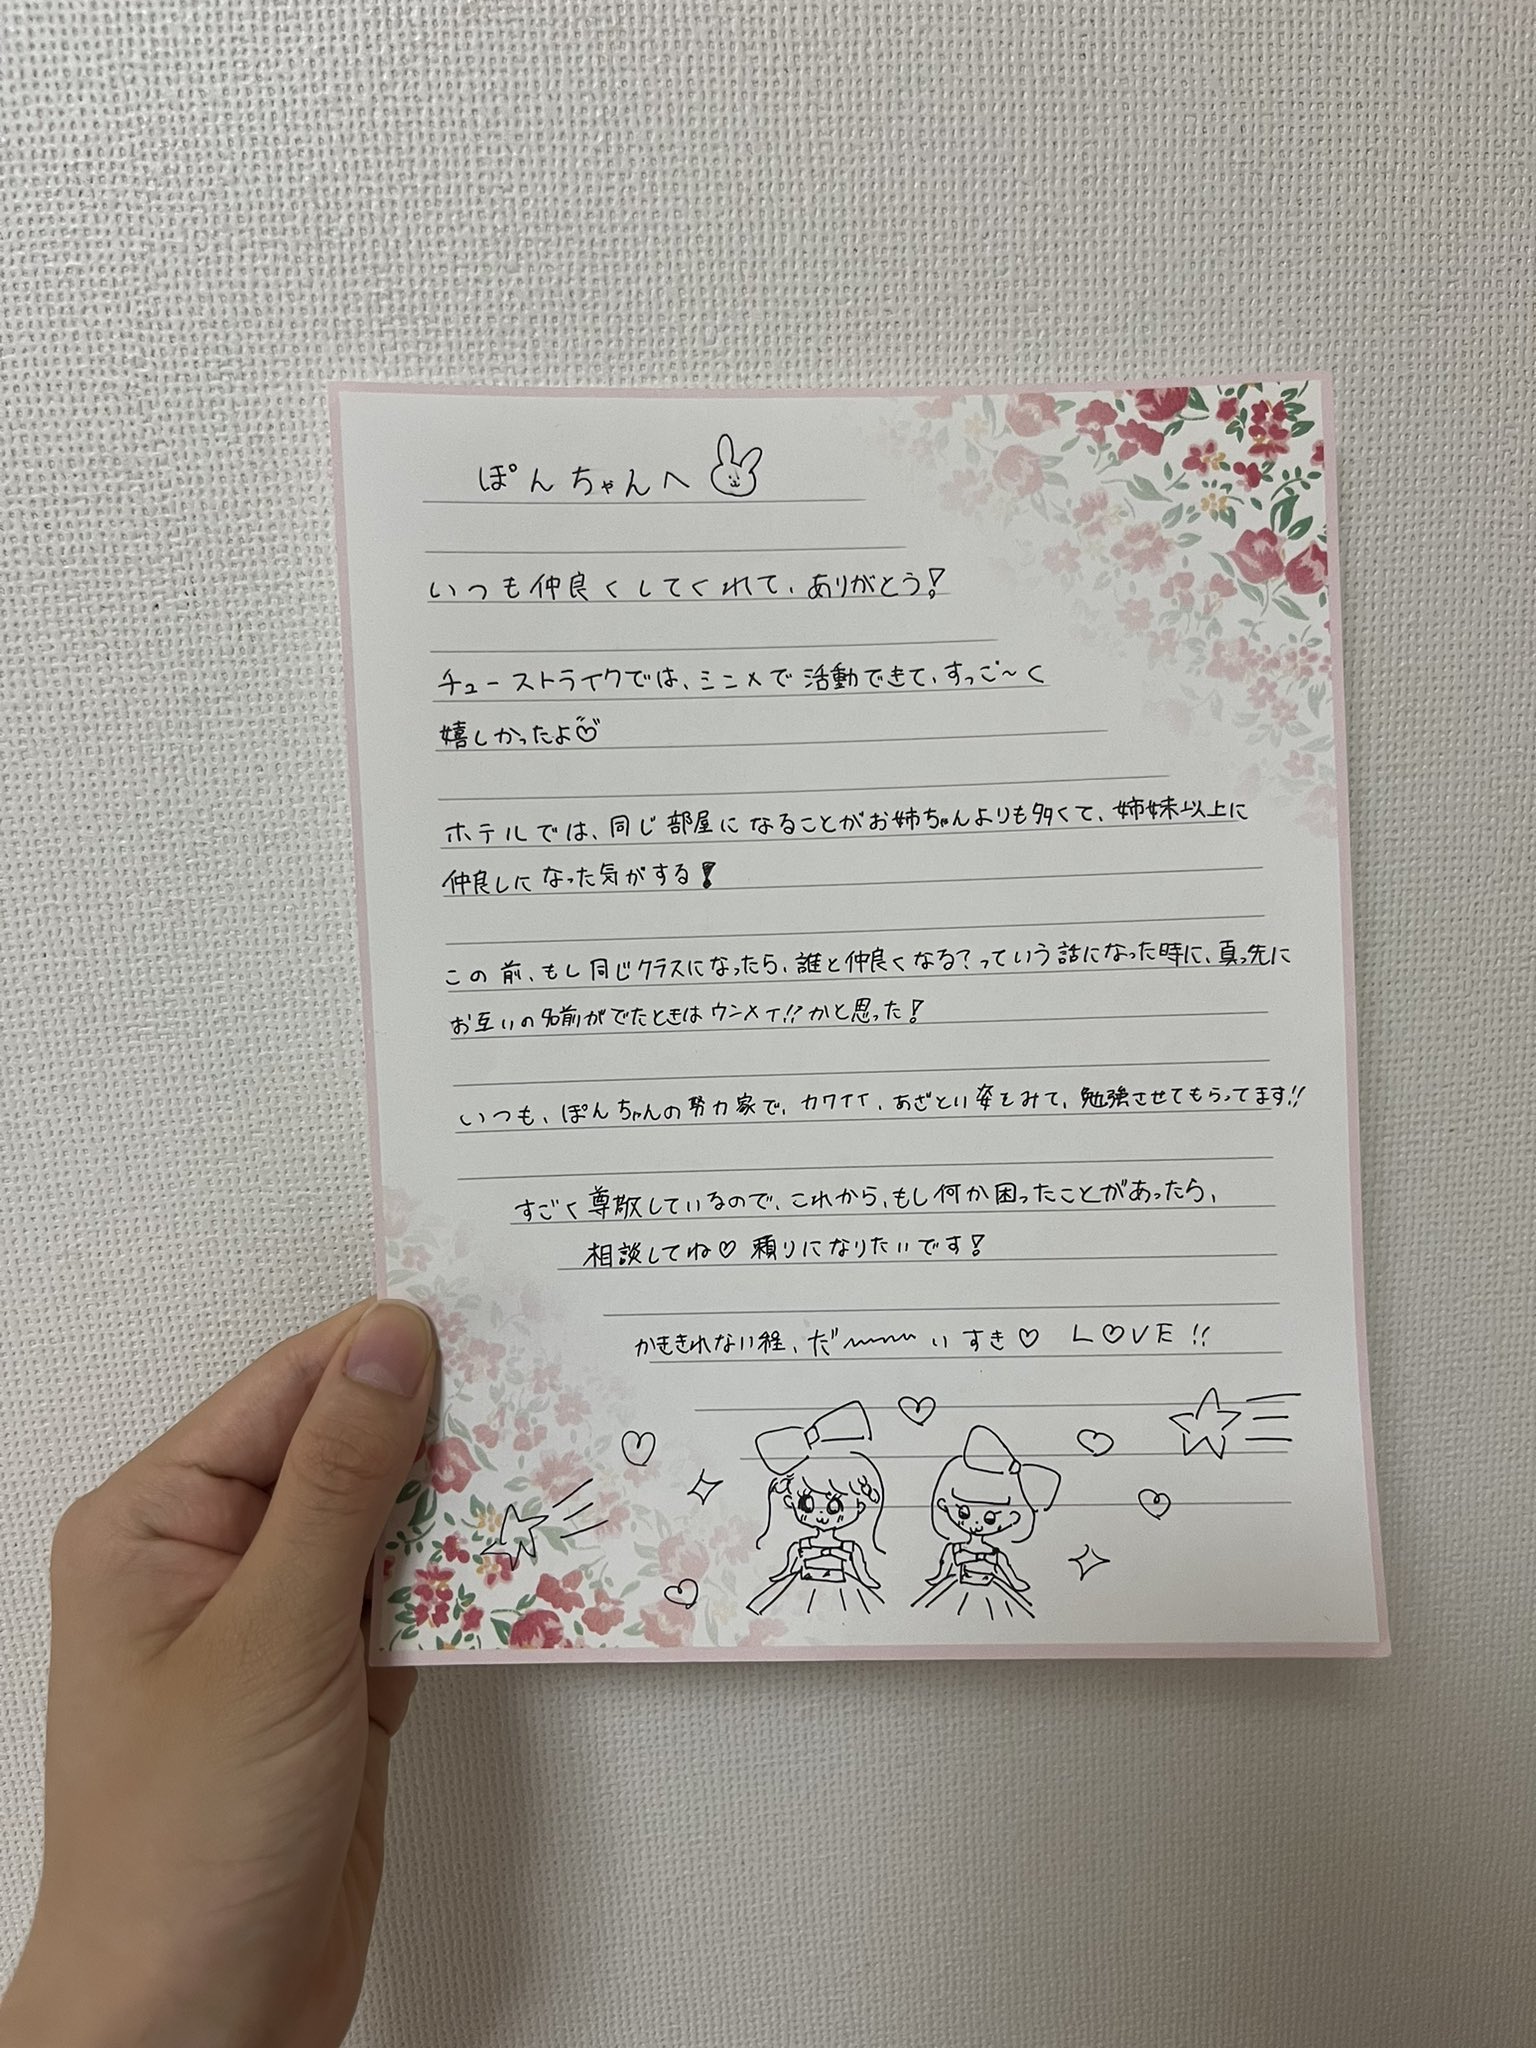 ぽんちゃんへ
いつも仲良くしてくれて、ありがとう!
チューストライクでは、ミンメで活動できて、すっご〜く
嬉しかったよ♡
ホテルでは、同じ部屋になることがお姉ちゃんよりも多くて、姉妹以上に
仲良しになった気がする!
この前、もし同じクラスになったら、誰と仲良くなる?っていう話になった時に、真っ先に
お互いの名前がでたときはウンメイ!!かと思った!
いつも、ぽんちゃんの努力家で、カワイイ、あざとい姿をみて、勉強させてもらってます!!
すごく尊敬しているので、これから、もし何か困ったことがあったら、
相談してね♡ 頼りになりたいです!
かききれない程、だ〜〜〜いすき♡ L♡VE!!